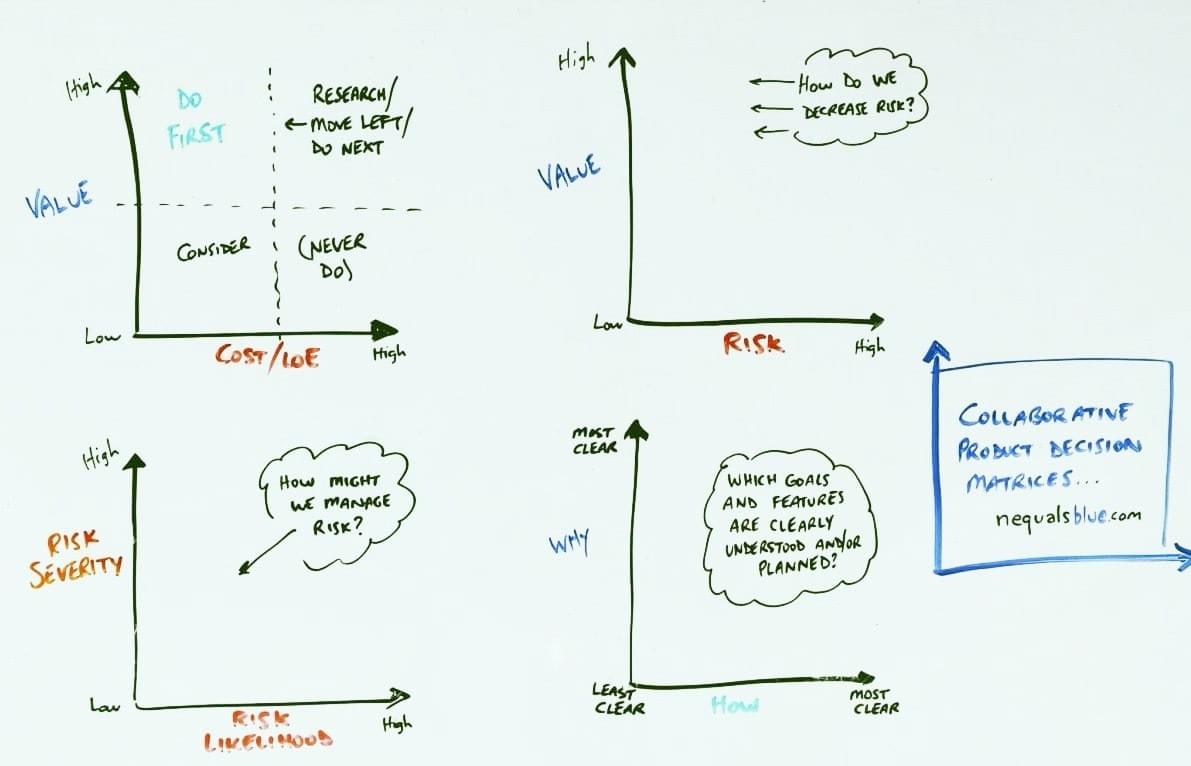 High
DO
FIRST
RESEARCH/
MOVE LEFT/
DO NEXT
VALUE
CONSIDER
(NEVER
DO)
Low
COST/LOE
High
High
HOW DO WE
DECREASE RISK?
VALUE
Low
RISK
High
High
HOW MIGHT
WE MANAGE
RISK?
RISK
SEVERITY
Low
RISK
LIKELIHOOD
High
MOST
CLEAR
WHICH GOALS
AND FEATURES
ARE CLEARLY
UNDERSTOOD AND/OR
PLANNED?
WHY
LEAST
CLEAR
HOW
MOST
CLEAR
COLLABORATIVE
PRODUCT DECISION
MATRICES...
nequalsblue.com